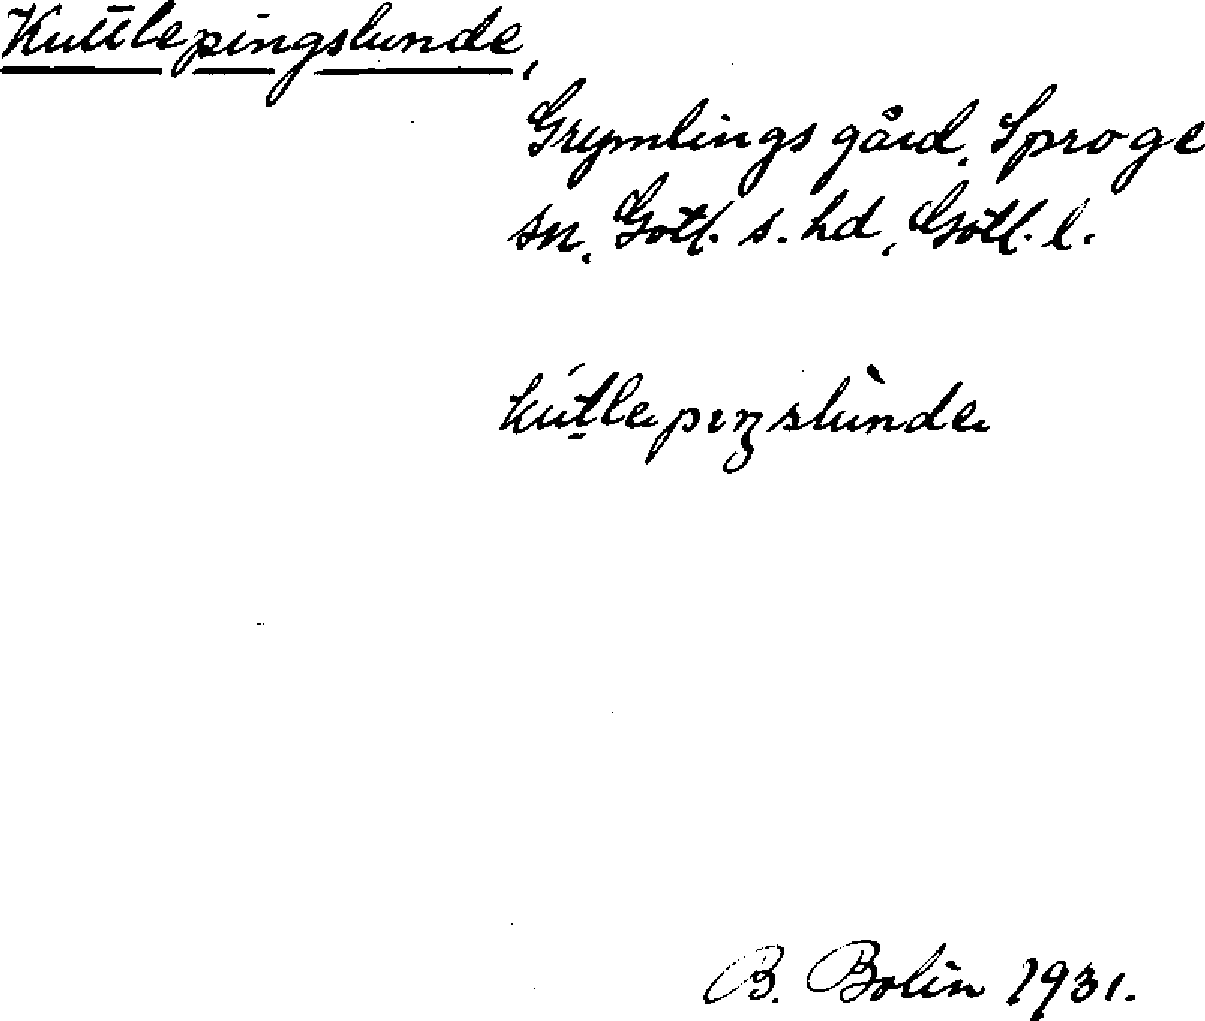 Kuttlepingslunde,
Grymlings gård, Sproge
sn, Gotl. s. hd, Gotl. l.
kút̠lepıŋslùnde
B. Bolin 1931.